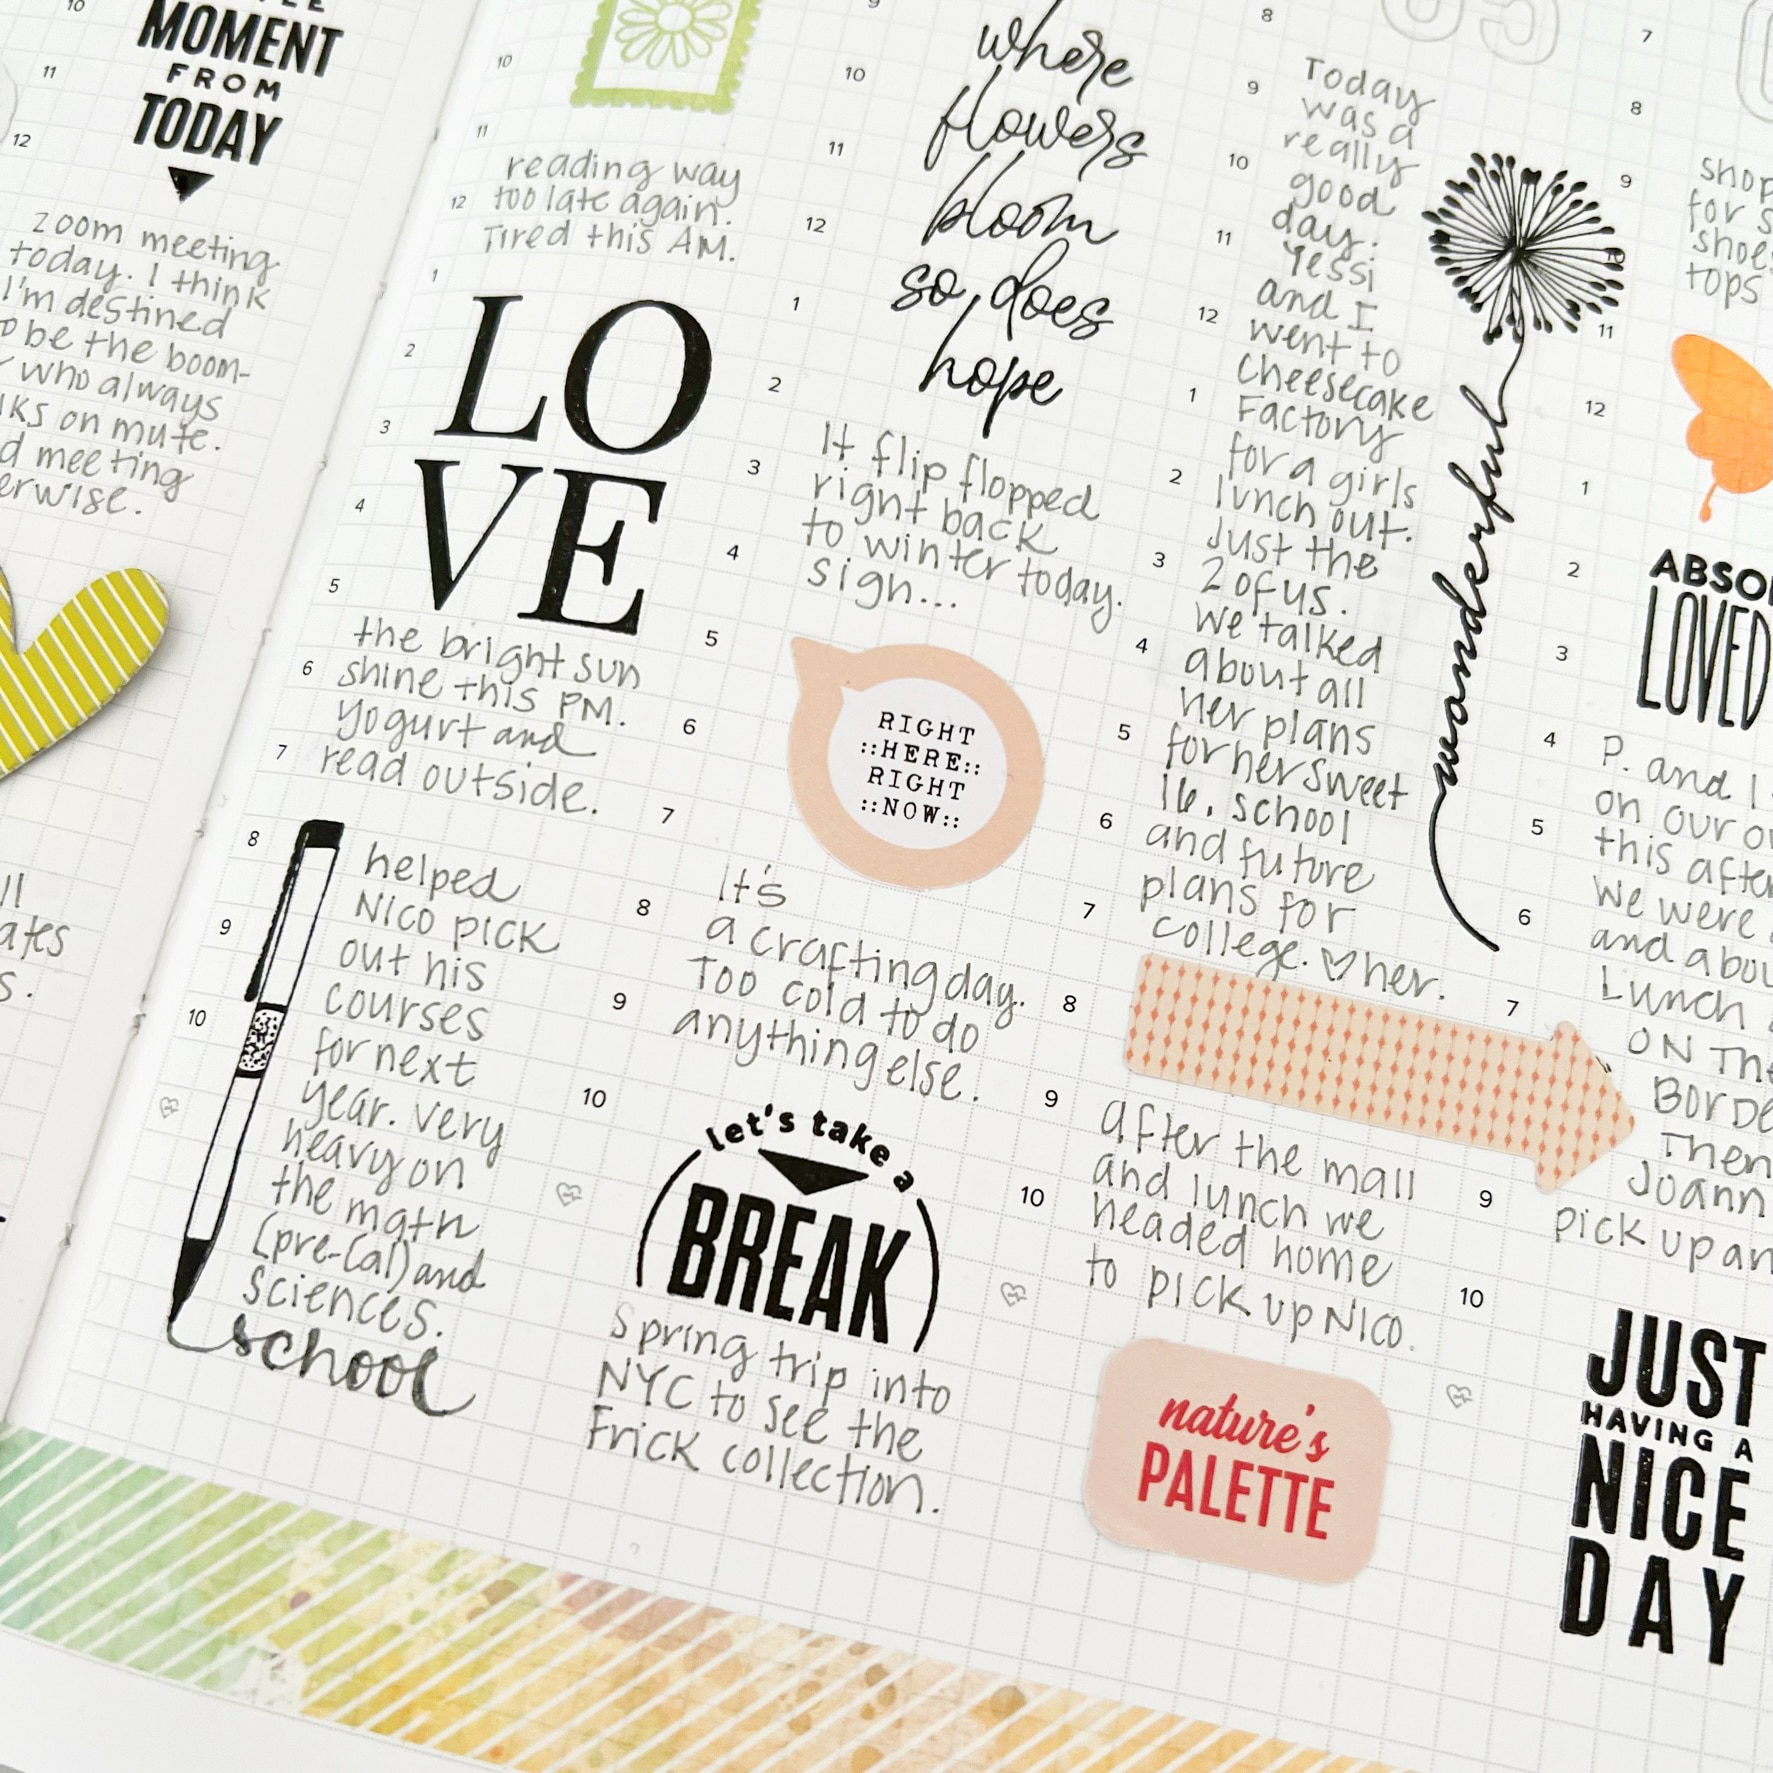 MOMENT
FROM
TODAY
zoom meeting
today. I think
I'm destined
be the boom-
who always
on mute.
meeting
reading way
too late again.
Tired this AM.
LO
VE
the bright sun
shine this PM.
yogurt and
read outside.
helped
Nico pick
out his
courses
for next
year. Very
heavy on
the math
(pre-Cal) and
sciences.
school
where
flowers
bloom
so does
hope
It flip flopped
right back
to winter today.
sign...
RIGHT
::HERE::
RIGHT
::NOW::
It's
a crafting day.
Too cold to do
anything else.
let's take a
BREAK
Spring trip into
NYC to see the
Frick collection.
Today
was a
really
good
day.
Yessi
and I
went to
Cheesecake
Factory
for a girls
lunch out.
Just the
2 of us.
We talked
about all
her plans
for her sweet
16, school
and future
plans for
college. ♡ her.
wonderful
after the mall
and lunch we
headed home
to pick up Nico.
nature's
PALETTE
for
LOVED
P. and I
on our
this
We were
and
Lunch
ON The
Then
Joann
pick up
JUST
HAVING A
NICE
DAY